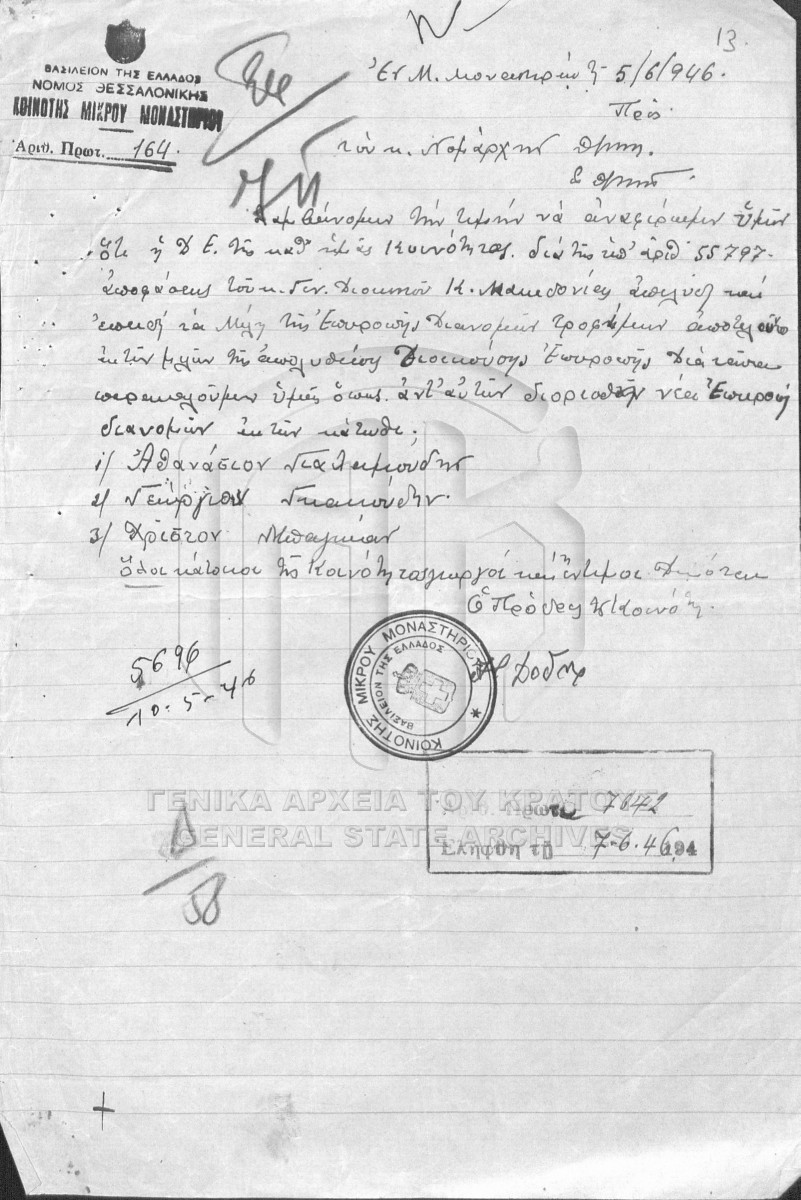 13.
ΒΑΣΙΛΕΙΟΝ ΤΗΣ ΕΛΛΑΔΟΣ
ΝΟΜΟΣ ΘΕΣΣΑΛΟΝΙΚΗΣ
ΚΟΙΝΟΤΗΣ ΜΙΚΡΟΥ ΜΟΝΑΣΤΗΡΙΟΥ
Ἀριθ. Πρωτ. 164.
Ἐν Μ. Μοναστηρίῳ τῇ 5/6/946.
Πρὸς
τὸν κ. Νομάρχην
Λαμβάνομεν τὴν τιμὴν νὰ ἀναφέρωμεν ὑμῖν
ὅτι ἡ Δ. Ε. τῆς καθ' ἡμᾶς Κοινότητος. διὰ τῆς ὑπ' ἀριθ 55797
ἀποφάσεως τοῦ κ. Γεν. Διοικητοῦ Κ. Μακεδονίας ἀπελύθη καὶ
ἐπειδὴ τὰ Μέλη τῆς Ἐπιτροπῆς Διανομῶν τροφίμων
ἐκ τῶν μελῶν τῆς ἀπολυθείσης Διοικούσης Ἐπιτροπῆς Διὰ ταῦτα
παρακαλοῦμεν ὑμᾶς ὅπως. ἀντ' αὐτῶν διορισθῇ νέα Ἐπιτροπὴ
διανομῶν ἐκ τῶν κάτωθι;
1/ Ἀθανάσιον
2/ Γεώργιον
3/ Χρῆστον
ὅλοι κάτοικοι τῆς Κοινότητος γεωργοὶ καὶ ἔντιμοι Δημόται
Ὁ Πρόεδρος τῆς Κοινότη.
ΚΟΙΝΟΤΗΣ ΜΙΚΡΟΥ ΜΟΝΑΣΤΗΡΙΟΥ
ΒΑΣΙΛΕΙΟΝ ΤΗΣ ΕΛΛΑΔΟΣ
5696
10-5-46
ΓΕΝΙΚΑ ΑΡΧΕΙΑ ΤΟΥ ΚΡΑΤΟΥΣ
GENERAL STATE ARCHIVES
Ἀριθ. Πρωτ. 7642
Ἐλήφθη τῇ 7-6-46 194